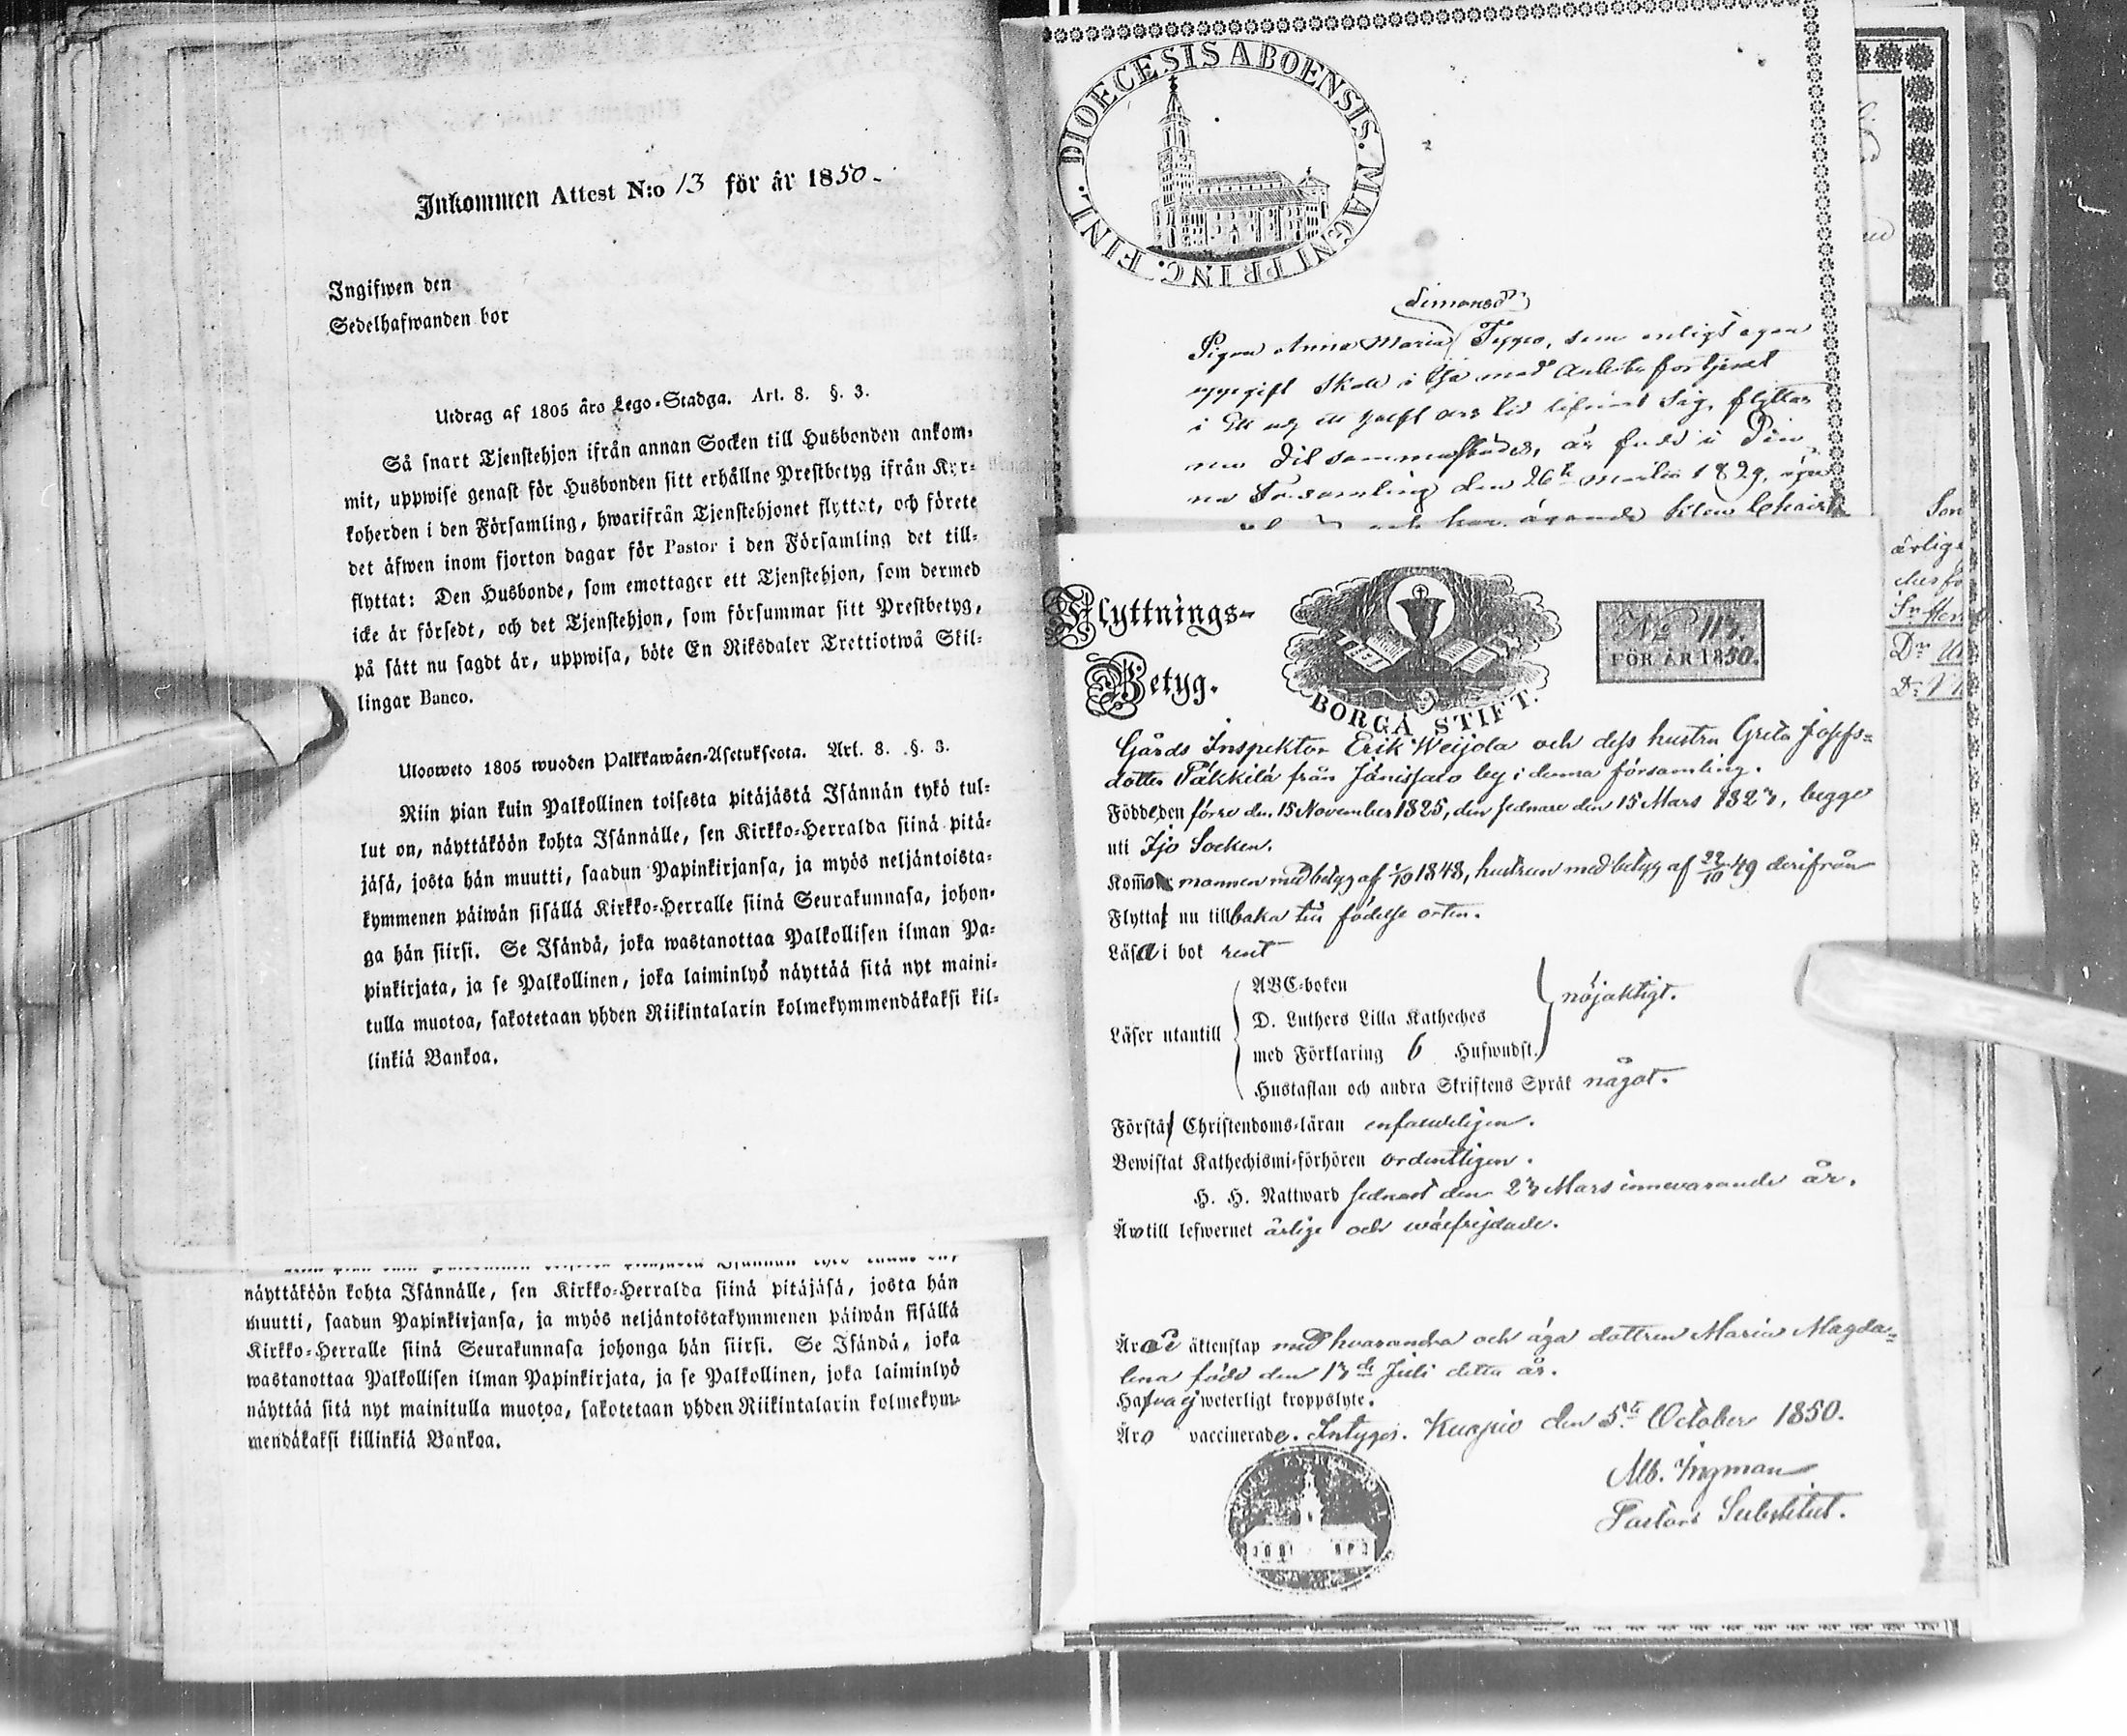 Inkommen Attest N:o 13 för år 1850.
Ingifwen den
Sedelhafwanden bor
Utdrag af 1805 års Lego-Stadga. Art. 8. §. 3.
Så snart Tjenstehjon ifrån annan Socken till Husbonden ankom-
mit, uppwise genast för Husbonden sitt erhållne Prestbetyg ifrån Kyr-
koherden i den Församling, hwarifrån Tjenstehjonet flyttat, och förete
det äfwen inom fjorton dagar för Pastor i den Församling det till-
flyttat: Den Husbonde, som emottager ett Tjenstehjon, som dermed
icke är försedt, och det Tjenstehjon, som försummar sitt Prestbetyg,
på sätt nu sagdt är, uppwisa, böte En Riksdaler Trettiotwå Skil-
lingar Banco.
Ulosweto 1805 wuoden Palkkawäen-Asetuksesta. Art. 8. §. 3.
Niin pian kuin Palkollinen toisesta pitäjästä Isännän tykö tul-
lut on, näyttäköön kohta Isännälle, sen Kirkko-Herralda siinä pitä-
jäsä, josta hän muutti, saadun Papinkirjansa, ja myös neljäntoista-
kymmenen päiwän sisällä Kirkko-Herralle siinä Seurakunnasa, johon-
ga hän siirsi. Se Isändä, joka wastanottaa Palkollisen ilman Pa-
pinkirjata, ja se Palkollinen, joka laiminlyö näyttää sitä nyt maini-
tulla muotoa, sakotetaan yhden Riikintalarin kolmekymmendäkaksi kil-
linkiä Bankoa.
näyttäköön kohta Isännälle, sen Kirkko-Herralda siinä pitäjäsä, josta hän
muutti, saadun Papinkirjansa, ja myös neljäntoistakymmenen päiwän sisällä
Kirkko-Herralle siinä Seurakunnasa johonga hän siirsi. Se Isändä, joka
wastanottaa Palkollisen ilman Papinkirjata, ja se Palkollinen, joka laiminlyö
näyttää sitä nyt mainitulla muotoa, sakotetaan yhden Riikintalarin kolmekym-
mendäkaksi killinkiä Bankoa.
DIOECESIS ABOENSIS. MAGNI PRINC. FINL.
Simonsd:r
Pigan Anna Maria Teppo, som enligt egen
uppgift skall i
i Ett och ett halft års tid sig, flyttar
nu dit är född i
na Församling den 26te Martii 1829, äger
Flyttnings-
Betyg.
BORGÅ STIFT.
No 113.
FÖR ÅR 1850.
Gårds Inspektor Erik Weijola och dess hustru Greta Josefs-
dotter Päkkilä från Jänissalo by i denna församling.
Födde, den förre den 15 November 1825, den sednare den 15 Mars 1827, begge
uti Ijo Socken.
Kom̃o mannen med betyg af 1/10 1848, hustrun med betyg af 22/10 49 derifrån
Flytta nu tillbaka till födelse orten.
Läsa i bok rent
Läser utantill
ABC-boken
D. Luthers Lilla Katheches
med Förklaring 6 Hufwudst.
nöjaktigt.
Hustaflan och andra Skriftens Språk något.
Förstå Christendoms-läran enfaldeligen.
Bewistat Kathechismi-förhören ordentligen.
H. H. Nattward sednast den 27 Mars innevarande år.
Äro till lefwernet ärlige och wälfrejdade.
Äro i äktenskap med hvarandra och äga dottren Maria Magda-
lena född den 17de Juli detta år.
Hafva ej weterligt kroppslyte.
Äro vaccinerade. Intygas. Kuopio den 5te October 1850.
Alb. Ingman
Pastors Substitut.